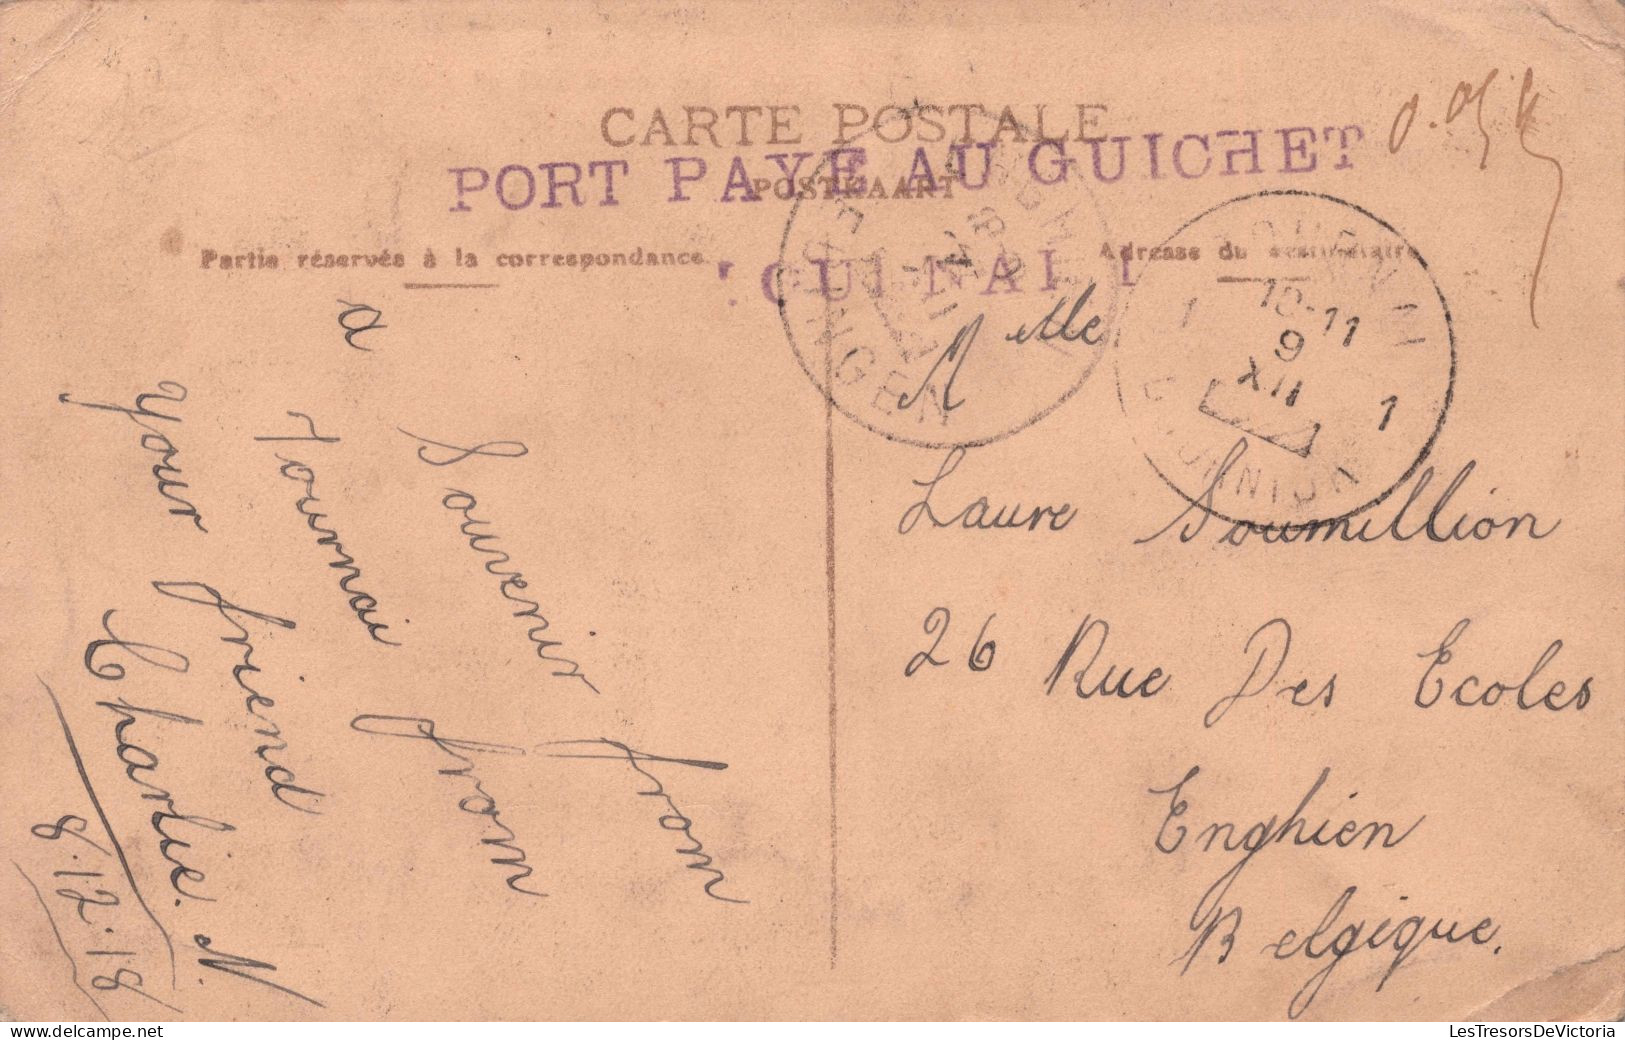 CARTE POSTALE
PORT PAYE AU GUICHET
POSTKAART
0.05
Partie réservée à la correspondance
Adresse du destinataire
a
Souvenir from
Tournai from
Your friend
Charlie. N.
8.12.18
10-11
9
XII
1
1
Melle
Laure Soumillion
26 Rue Des Ecoles
Enghien
Belgique.
LesTresorsDeVictoria